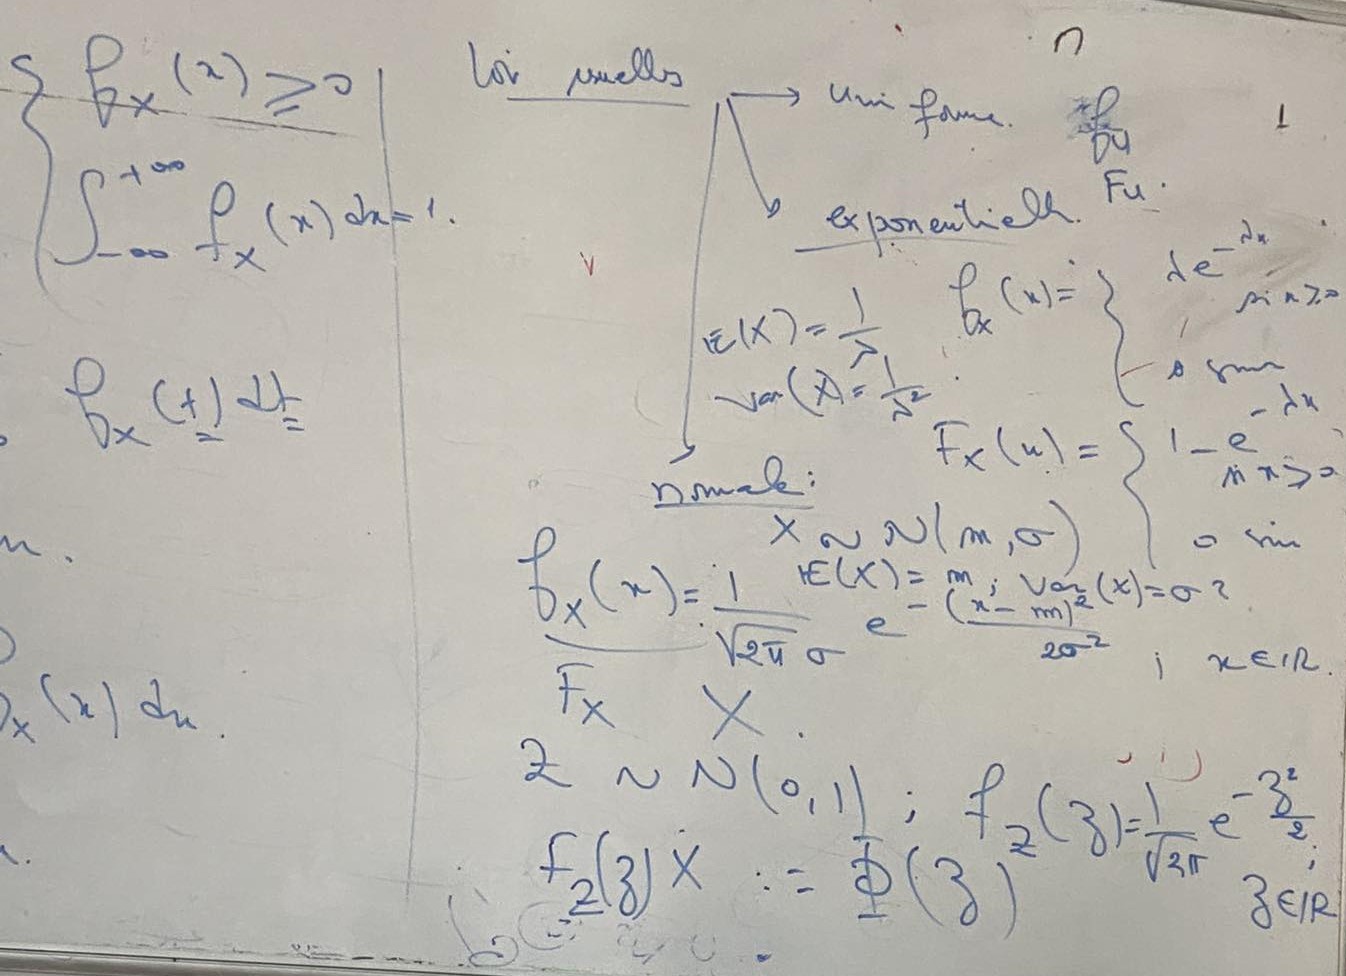 { f_X(x) ≥ 0
∫_{-∞}^{+∞} f_X(x) dx = 1.
f_X(t) dt
f_X(x) dx.
loi usuelles → uniforme. f_U
F_U.
exponentielle.
E(X) = 1/λ
Var(X) = 1/λ².
f_X(x) = { λe^{-λx}, si x ≥ 0
0 sinon
F_X(x) = { 1 - e^{-λx} si x ≥ 0
0 sin
normale:
X ~ N(m, σ)
E(X) = m ; Var(X) = σ²
f_X(x) = 1/(√2π σ) e^{-(x-m)²/2σ²} ; x ∈ ℝ.
F_X X.
Z ~ N(0,1) ; f_Z(z) = 1/√2π e^{-z²/2} ; z ∈ ℝ
F_Z(z) X := Φ(z)